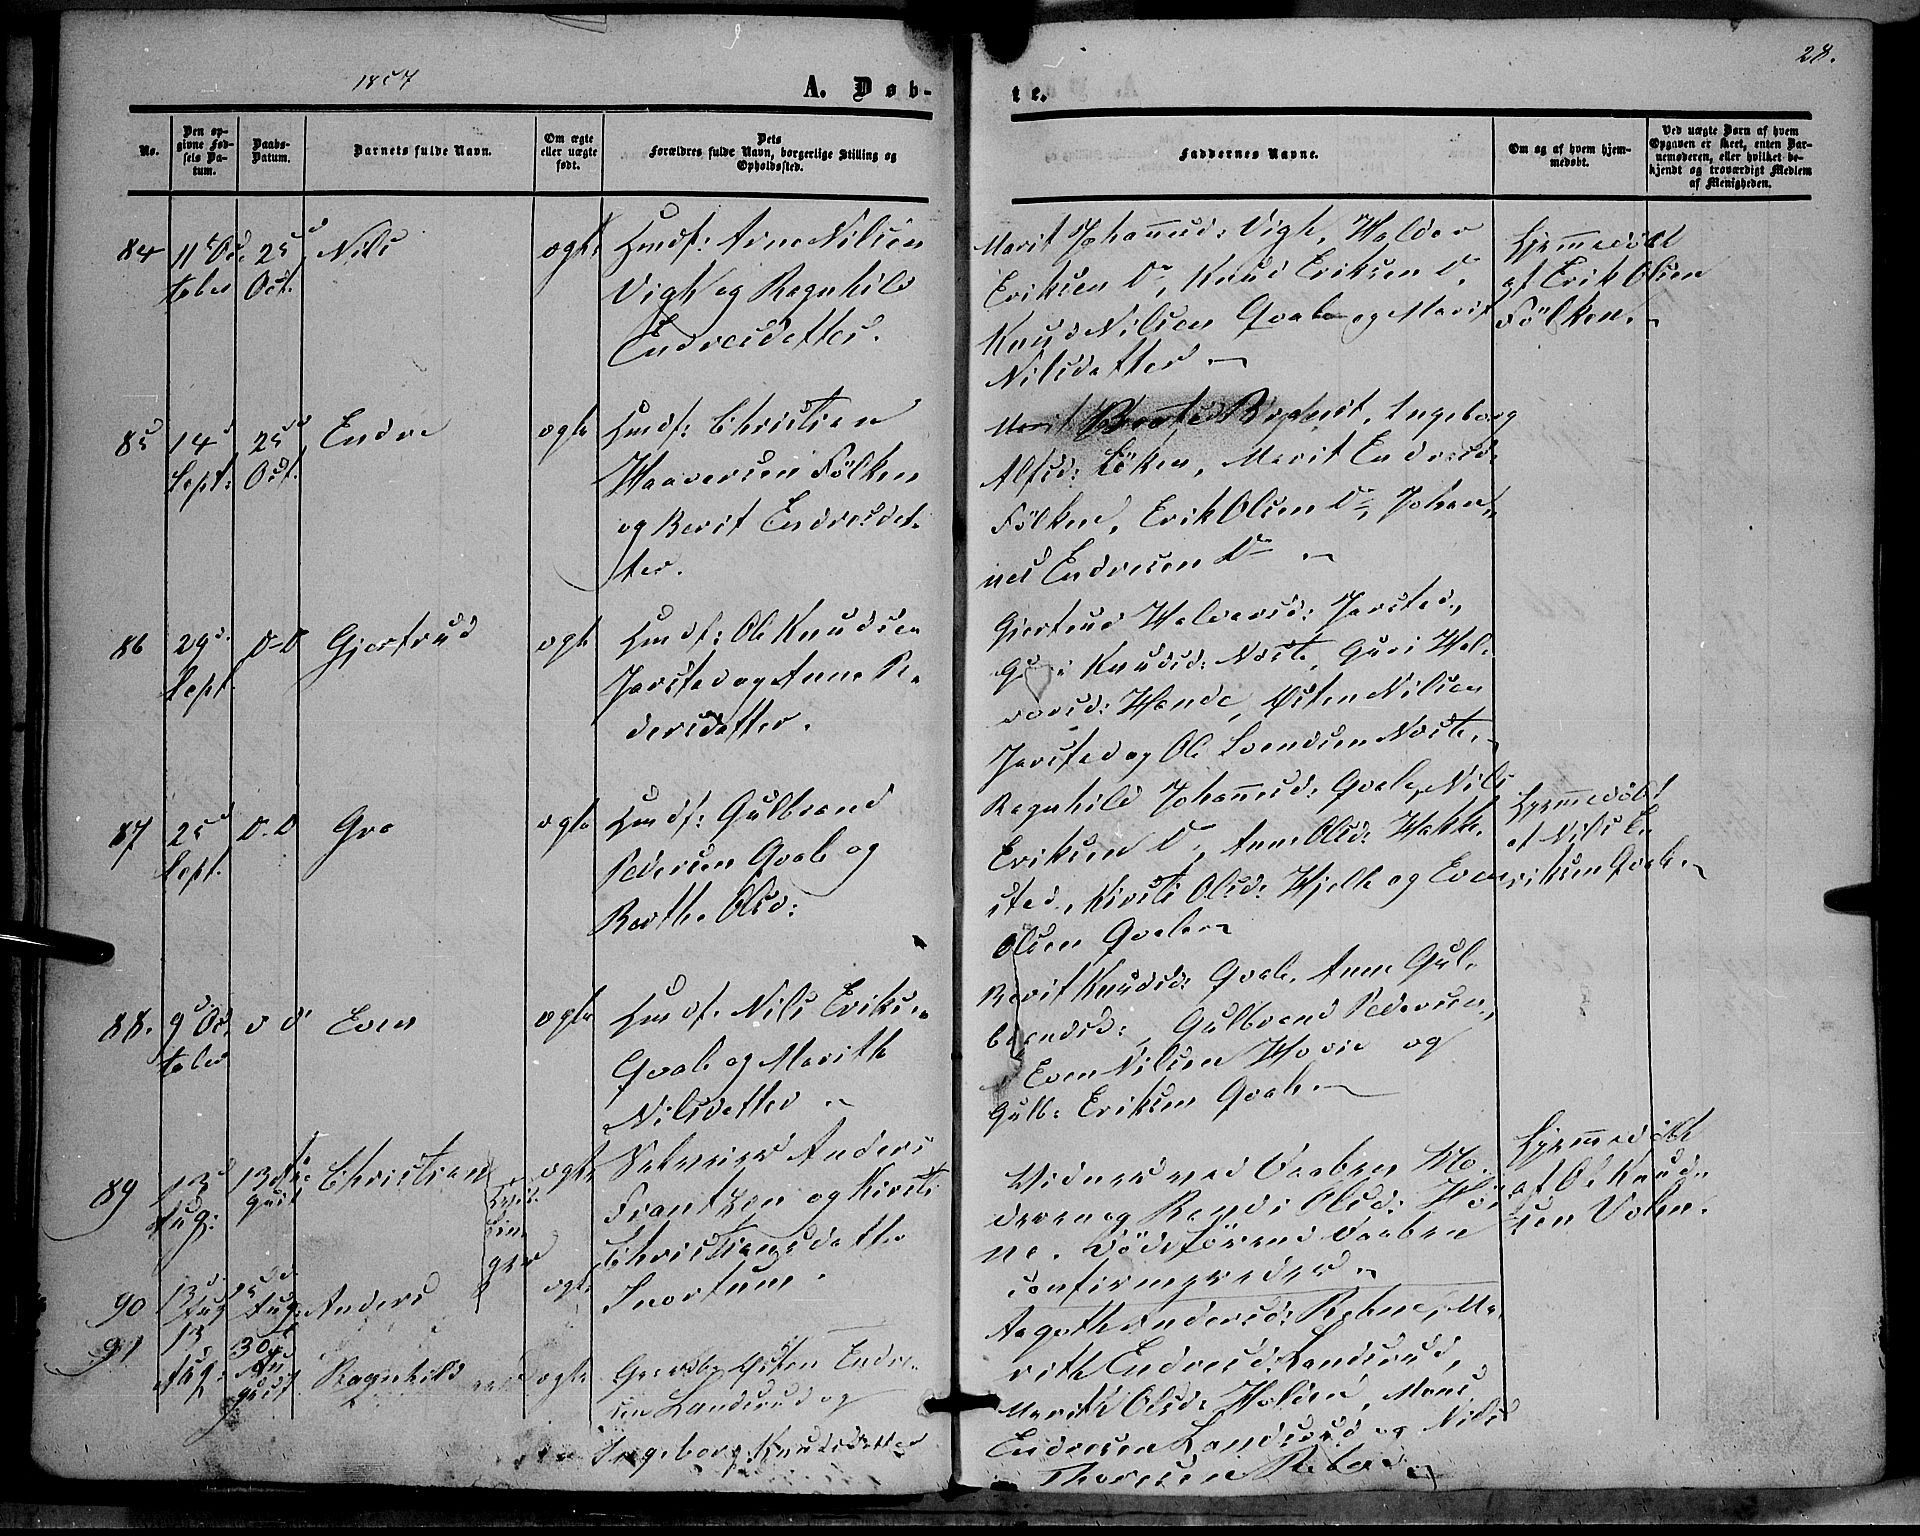 28.
1857
A. Døb-
te.
No.
Den op-
givne Fød-
sels Da-
tum.
Daabs-
Datum.
Barnets fulde Navn.
Om ægte
eller uægte
født.
Dets
Forældres fulde Navn, borgerlige Stilling og
Opholdssted.
Faddernes Navne.
Om og af hvem hjem-
medøbt.
Ved uægte Børn af hvem
Opgaven er skeet, enten Bar-
nemoderen, eller hvilket be-
kjendt og troværdigt Medlem
af Menigheden.
84
11te Oc
tober
25d
Oct.
Nils
ægte
Huusf: Arne Nilsen
Vigh og Ragnhild
Endresdatter.
Marit Johannisd: Vigh, Haldor
Eriksen Do, Knud Eriksen Do,
Knud Nilsen Qvale og Marit
Nilsdatter
Hjemmedøbt
af Erik Olsen
Følken.
85
14d
Sept:
25d
Oct.
Endre
ægte
Huusf: Christian
Haavorsen Følken
og Berit Endresdat-
ter.
Ingeborg
Alfsd: Løken, Marit Endresd:
Følken, Erik Olsen Do, Johan-
nes Endresen Do
86
29d
Sept.
D-D
Gjertrud
ægte
Huusf: Ole Knudsen
Jarsted og Anne Pe-
dersdatter.
Gjertrud Halvorsd: Jarsted,
Guri Knudsd: Noste, Guri Hal-
vorsd: Hande, Østen Nilsen
Jarsted og Ole Svendsen Noste.
87
25d
Sept.
D-D
Gro
ægte
Huusf: Gulbrand
Pedersen Qvale og
Berthe Olsd:
Ragnhild Johannisd: Qvale, Nils
Eriksen Do, Anne Olsd:
sted, Kirsti Olsd: Hjelle og Even
Olsen Qvale
Hjemmedøbt
af Nils E-
riksen Qvale.
88.
9d Oc
tober
D D
Even
ægte
Huusf. Nils Eriksen
Qvale og Marithe
Nilsdatter
Berit Knudsd: Qvale, Anne Gul-
brandsd:, Gulbrand Pedersen,
Even Nilsen Hovie og
Gulb: Eriksen Qvale.
89
13d
Aug:
13de Au-
gust
Christian
Tvil-
lin-
ger
ægte
Anders
Frantzen og Kirsti
Christiansdatter
Snortum.
Vidner ved Daaben Mo-
deren og Randi Olsd:
ne. Døde førend Daaben
confirmeredes.
Hjemmedøbt
af Ole Knud-
sen Volen.
90
13d
Aug
Aug:
Anders
ægte
91
13
Aug:
30te
Au-
gust
Ragnhild
ægte
Gaardbr Østen Endre-
sen Landsrud og
Ingeborg Knudsdatter
Aagothe Andersd: Rabne, Ma-
rith Endresd: Landsrud,
Marith Olsd: Holden, Mons
Endresen Landsrud og Nils
Thoresen